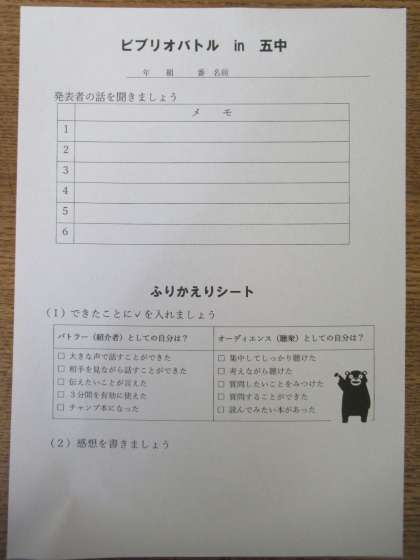 ビブリオバトル in 五中
年 組 番 名前
発表者の話を聞きましょう
メ モ
1
2
3
4
5
6
ふりかえりシート
(1)できたことに✓を入れましょう
バトラー(紹介者)としての自分は?
□ 大きな声で話すことができた
□ 相手を見ながら話すことができた
□ 伝えたいことが言えた
□ 3分間を有効に使えた
□ チャンプ本になった
オーディエンス(聴衆)としての自分は?
□ 集中してしっかり聴けた
□ 考えながら聴けた
□ 質問したいことをみつけた
□ 質問することができた
□ 読んでみたい本があった
(2)感想を書きましょう